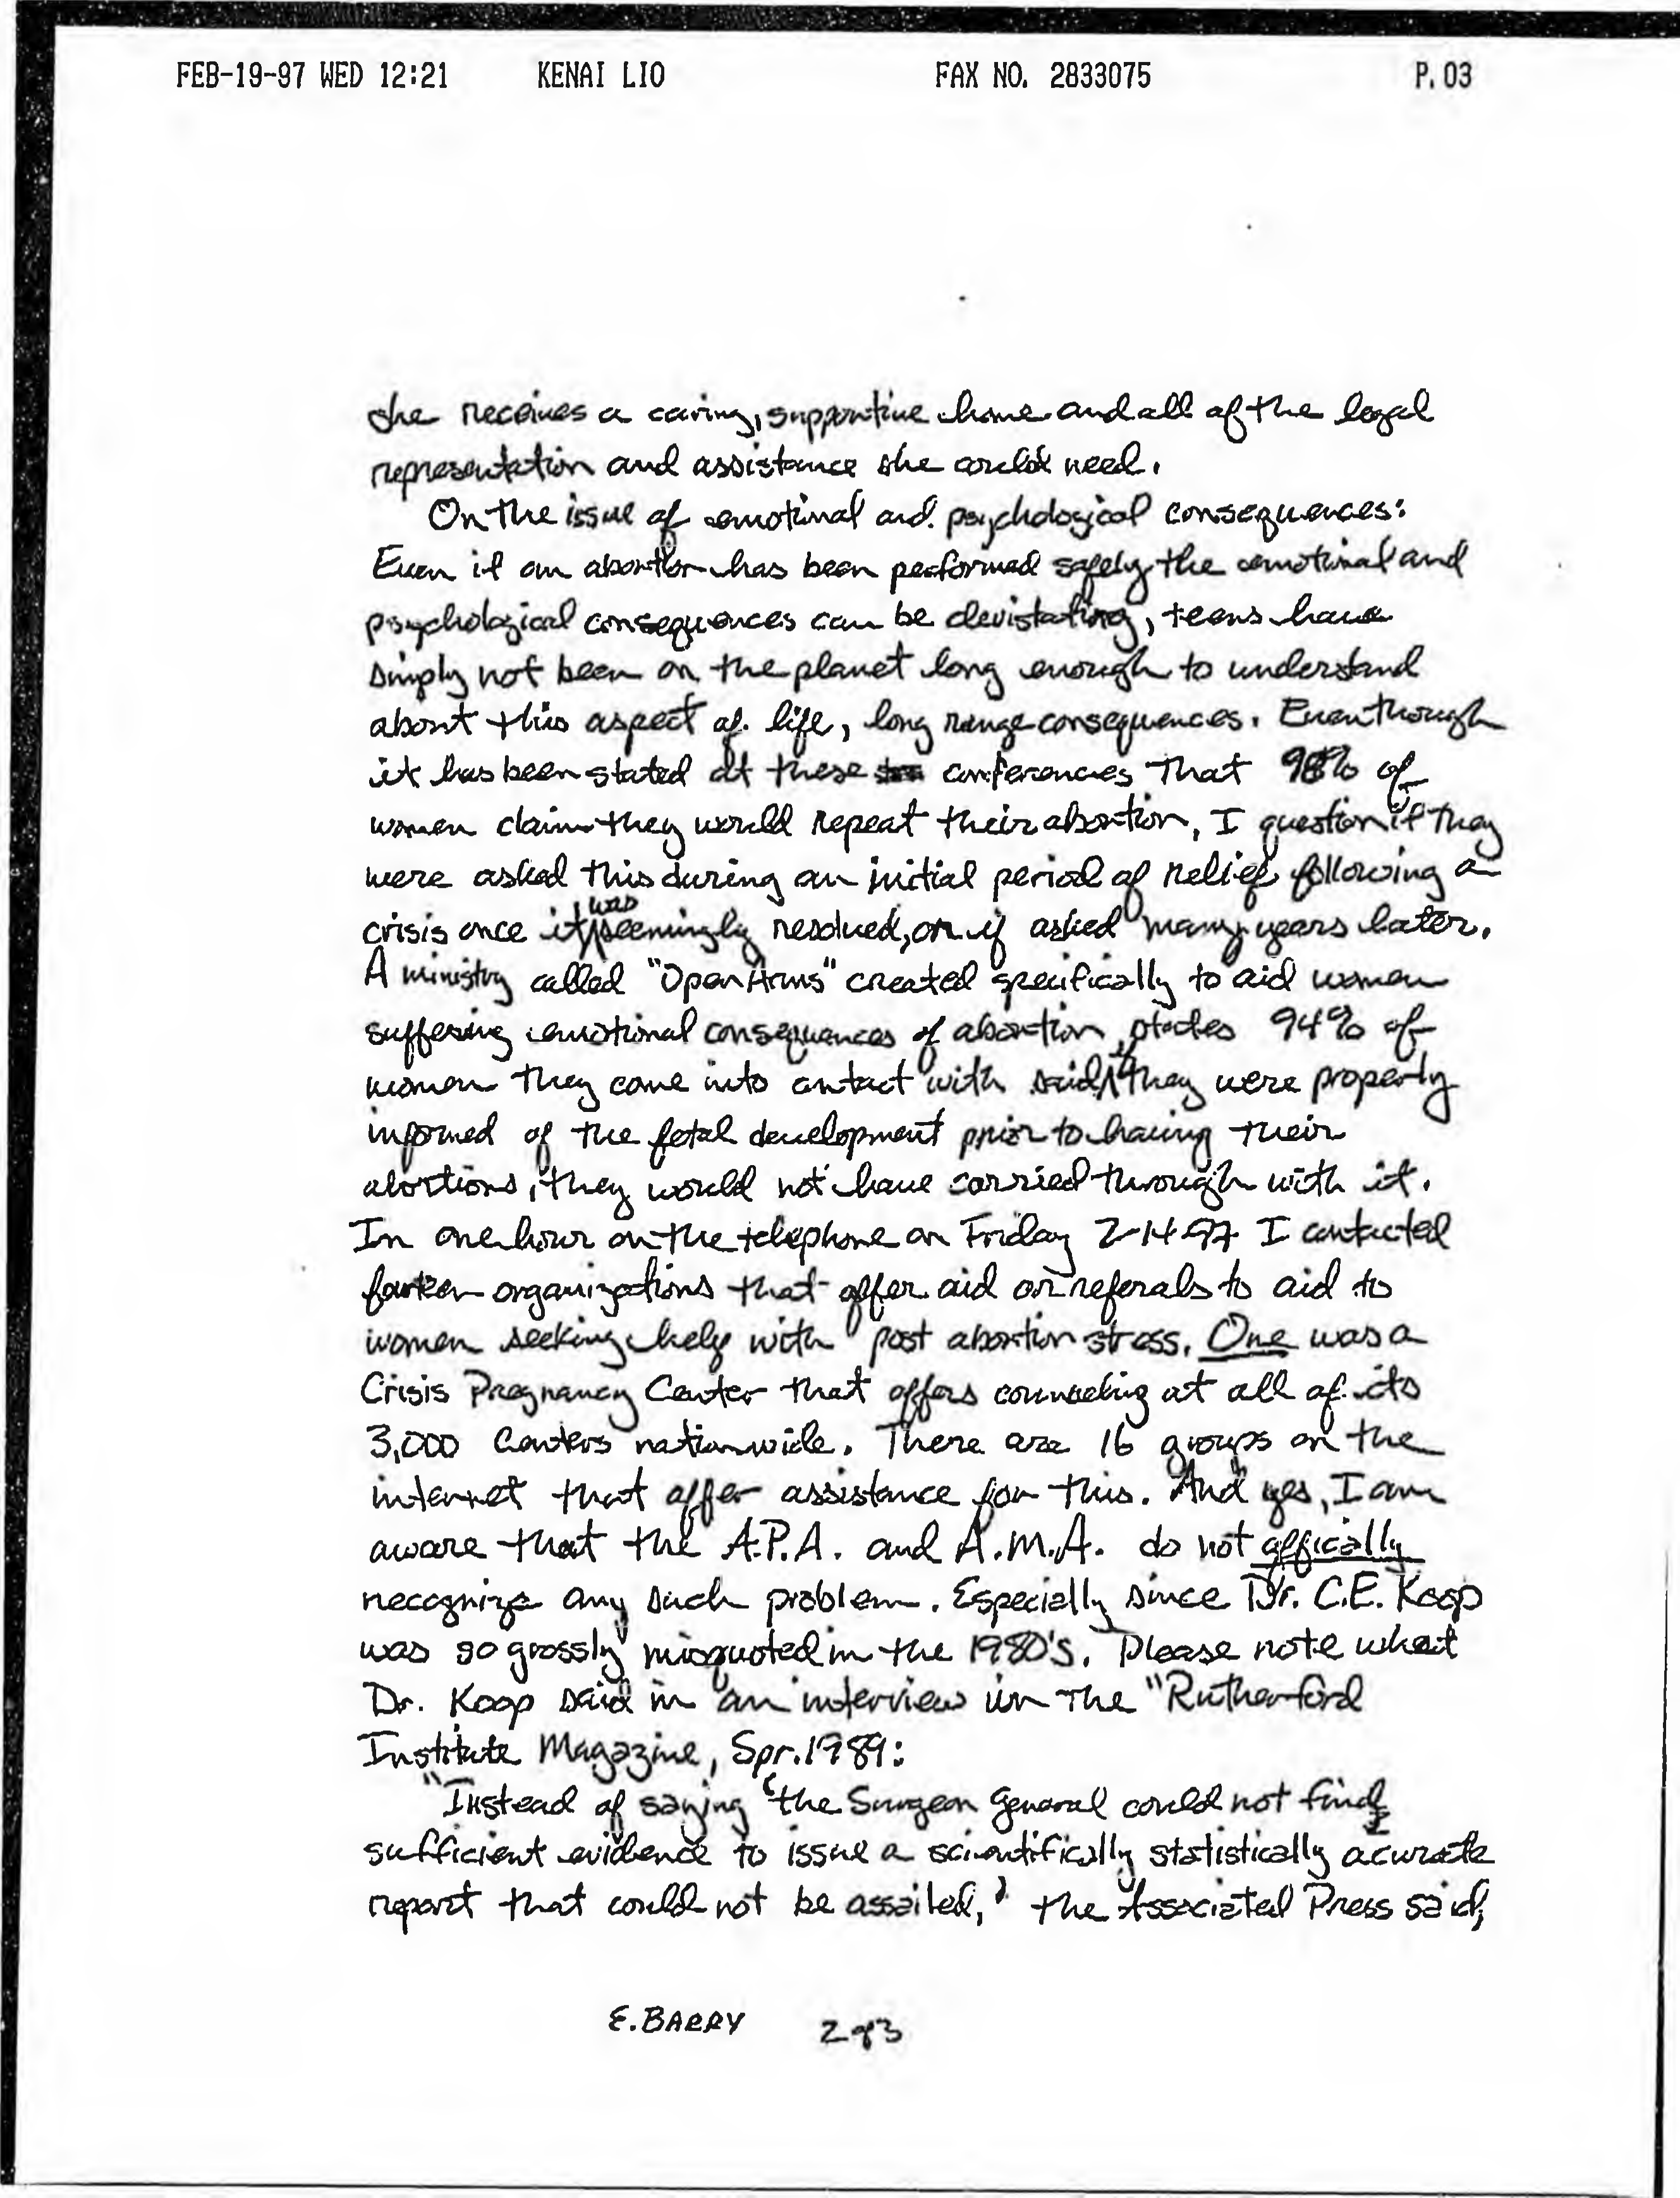 FEB-19-97 WED 12:21 KENAI LIO FAX NO. 2833075 P. 03
she receives a caring, supportive home and all of the legal
representation and assistance she could need.
On the issue of emotional and psychological consequences:
Even if an abortion has been performed safely the emotional and
psychological consequences can be devistating, teens have
simply not been on the planet long enough to understand
about this aspect of life, long range consequences. Eventhough
it has been stated at these conferences that 98% of
women claim they would repeat their abortion, I question if they
were asked this during an initial period of relief following a
crisis once it was seemingly resolved, or if asked many years later.
A ministry called "Open Arms" created specifically to aid women
suffering emotional consequences of abortion, states 94% of
women they come into contact with said if they were properly
informed of the fetal development prior to having their
abortions, they would not have carried through with it.
In one hour on the telephone on Friday 2-14-97 I contacted
organizations that offer aid or referals to aid to
women seeking help with post abortion stress. One was a
Crisis Pregnancy Center that offers counseling at all of its
3,000 Centers nationwide. There are 16 groups on the
internet that offer assistance for this. And yes, I am
aware that the A.P.A. and A.M.A. do not offically
recognize any such problem. Especially since Dr. C.E. Koop
was so grossly misquoted in the 1980's. Please note what
Dr. Koop said in an interview in the "Rutherford
Institute Magazine, Spr. 1989:
"Instead of saying 'the Surgeon General could not find
sufficient evidence to issue a scientifically statistically acurate
report that could not be assailed,' the Associated Press said,
E. BARRY 2 of 3